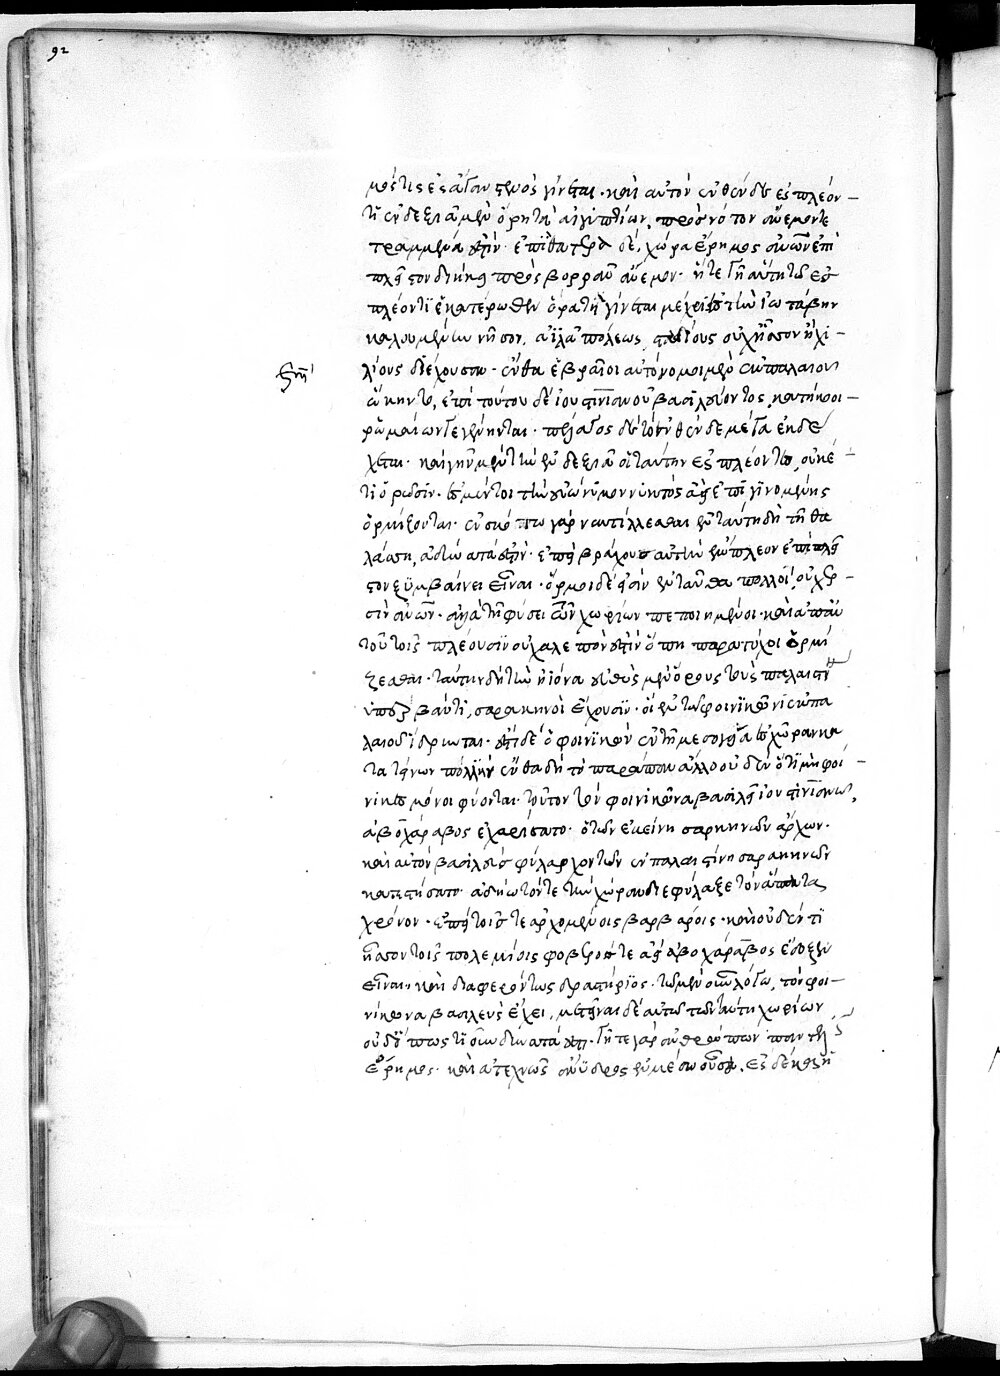 92
μός τις ἐς ἄγαν στενὸς γίνεται· καὶ αὐτὸν ἐνθένδε ἐσπλέον –
τι ἐν δεξιᾷ μὲν ὄρη τὰ αἰγυπτίων, πρὸς νότον ἄνεμον τε
τραμμένα ἐστίν· ἐπὶ θάτερα δέ, χώρα ἔρημος ἀνων ἐπὶ
πλεῖστον διήκει πρὸς βορρᾶν ἄνεμον· ἥ τε γῆ αὕτη τῷ ἐσ
πλέοντι ἑκατέρωθεν ὁρατὴ γίνεται μέχρι ἐς τὴν ἰωτάβην
καλουμένην νῆσον, αἰλᾶ πόλεως, σταδίους οὐχ ἧσσον ἢ χι –
λίους διέχουσαν· ἔνθα ἑβραῖοι αὐτόνομοι μὲν ἐκ παλαιοῦ
ᾤκηντο, ἐπὶ τούτου δὲ ἰουστινιανοῦ βασιλεύοντος, κατήκοοι –
ῥωμαίων γεγένηνται· πέλαγος δὲ τὸ ἐνθένδε μέγα ἐκδέ
χεται· καὶ γῆν μὲν τὴν ἐν δεξιᾷ οἱ ταύτην ἐσπλέοντες, οὐκέ –
τι ὁρῶσιν· ἐς μέντοι τὴν εὐώνυμον νυκτὸς ἀεὶ ἐπιγινομένης
ὁρμίζονται· ἐν σκότω γὰρ ναυτίλλεσθαι ἐν ταύτη δὴ τῇ θα
λάσση, ἀδύνατά ἐστιν· ἐπεὶ βράχους αὐτὴν ἔμπλεον ἐπὶ πλεῖ
στον ξυμβαίνει εἶναι· ὅρμοι δέ εἰσιν ἐνταῦθα πολλοί, οὐ χερ –
σὶν ἀνων· ἀλλὰ τῇ φύσει τῶν χωρίων πεποιημένοι· καὶ ἀπ' αὐ
τοῦ τοῖς πλέουσιν οὐ χαλεπόν ἐστιν ὅπη παρατύχοι ὁρμί
ζεσθαι· ταύτην δὴ τὴν ἠϊόνα εὐθὺς μὲν ὅρους τοὺς παλαιστί
ὑπερβάντι, σαρακηνοὶ ἔχουσιν· οἳ ἐν τῷ φοινικῶνι ἐκ πα
λαιοῦ ἵδρυνται· ἔστι δὲ ὁ φοινικὼν ἐν τῇ μεσογείᾳ ἐς χώραν κα
τατείνων πολλὴν ἔνθα δὴ τὸ παράπαν ἄλλο οὐδὲν ὅτι μὴ φοί –
νικες μόνοι φύονται· τοῦτον τὸν φοινικῶνα βασιλεῖ ἰουστινιανῷ,
ἀβοχάραβος ἐχαρίσατο· ὁ τῶν ἐκείνη σαρακηνῶν ἄρχων·
καὶ αὐτὸν βασιλεὺς φύλαρχον τῶν ἐν παλαιστίνη σαρακηνῶν
κατεστήσατο· ἀδήωτόν τε τὴν χώραν διεφύλαξε τὸν ἅπαντα
χρόνον· ἐπεὶ τοῖς τε ἀρχομένοις βαρβάροις· καὶ οὐδέν τι
ἧσσον τοῖς πολεμίοις φοβερός τε ἀεὶ ἀβοχάραβος ἔδοξεν
εἶναι· καὶ διαφερόντως δραστήριος· τῷ μὲν οὖν λόγω, τὸν φοι –
νικῶνα βασιλεὺς ἔχει, μετεῖναι δὲ αὐτῶ τῶν ταύτη χωρίων
οὐδ' ὁπωστιοῦν δυνατά ἐστι· γῆ τε γὰρ ἀνθρώπων παντελῶς
ἔρημος· καὶ ἀτεχνῶς ἄνυδρος ἐν μέσω οὖσα, ἐς δέκα